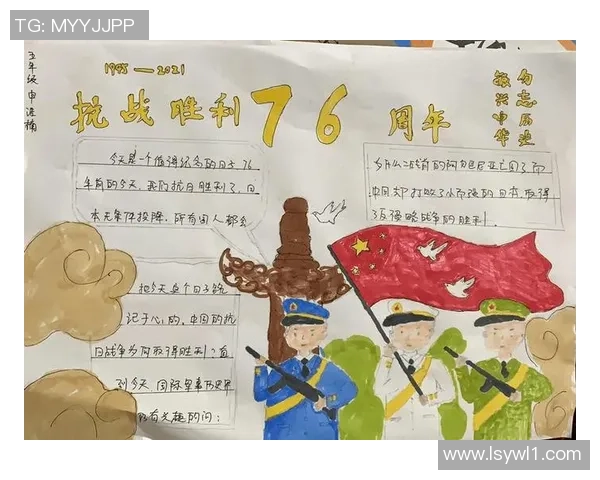 TG: MYYJJPP
1945—2021
抗战胜利76周年
勿忘历史
振兴中华
五年级 申
今天是一个值得纪念的日子,76
年前的今天,我们抗日胜利了,日
本无条件投降,所有国人都会
把今天这个日子铭
记于心的,中国的抗
日战争为何取得胜利?直
到今天,国际军事历史界
仍有关趣的问:
为什么二战前的阿比尼亚亡国了而
中国却打败了小而强的日本,取得
了反侵略战争的胜利.
www.lsywl1.com